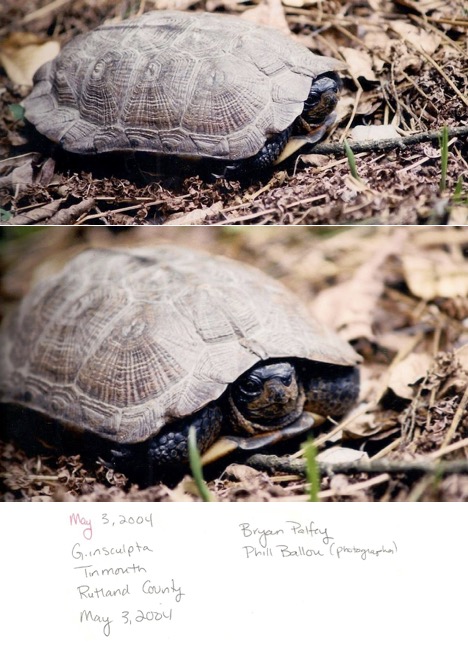 May 3, 2004
G. insculpta
Tinmouth
Rutland County
May 3, 2004
Bryan Palfey
Phill Ballou (photographer)